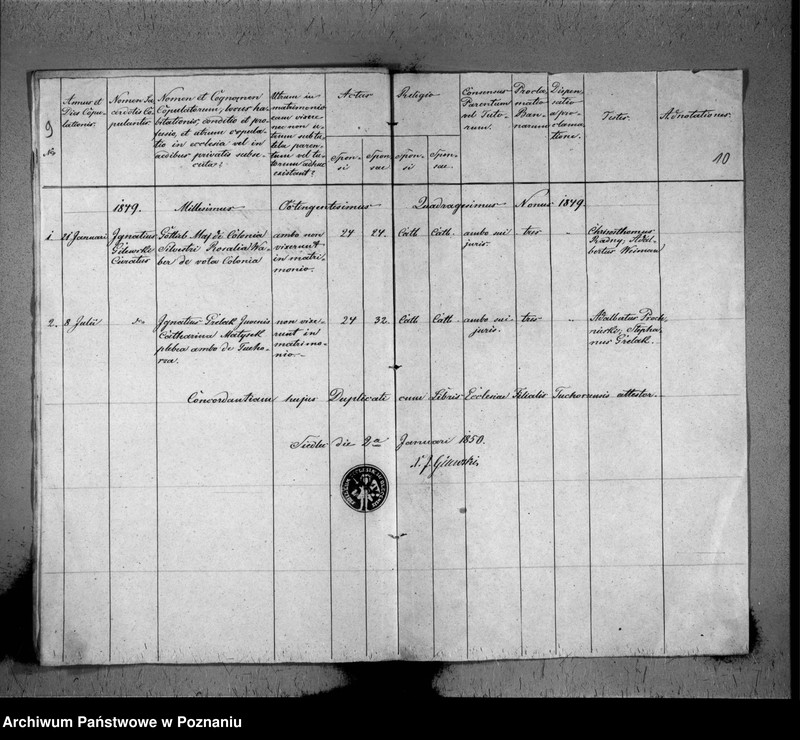 9
No
Annus et
Dies Copu-
lationis.
Nomen Sa-
cerdotis Co-
pulantis.
Nomen et Cognomen
Copulatorum, locus ha-
bitationis, conditio et pro-
fessio, et utrum copula-
tio in ecclesia vel in
aedibus privatis subse-
cuta?
Utrum in
matrimonio
eam vixerint
nec non
utrum sub tu-
tela paren-
tum vel tu-
torum adhuc
existant?
Aetas
Spon-
si
Spon-
sae
Religio
Spon-
si
Spon-
sae.
Consensus
Parentum
vel Tuto-
rum.
Procla-
matio
Ban-
norum
Dispen-
satio
a pro-
clama-
tione.
Testes.
Adnotationes.
10
1849. Millesimus Octingentesimus Quadragesimus Nonus 1849
1. 21 Januari
Ignatius
Gilewski
Curatus
Gottlieb Maj de Colonia
Rosalia We-
ber de vota Colonia
ambo non
vixerunt
in matri-
monio.
24 24. Cath Cath. ambo sui
juris.
tres "
Chrisosthomus
Radny, Adal-
bertus
2. 8 Julii do
Ignatius Grelak Juvenis
Catharina Matysek
plebea ambo de Tucho-
rza.
non vixe-
runt in
matrimo-
nio.
24 32. Cath Cath. ambo sui
juris.
tres "
Adalbertus Proch-
Stepha-
nus Grelak.
Concordantiam hujus Duplicati cum Libris Ecclesiae Filialis Tuchorzensis attestor.
Siedlec die 2a Januari 1850.
X. J. Gilewski
Archiwum Państwowe w Poznaniu